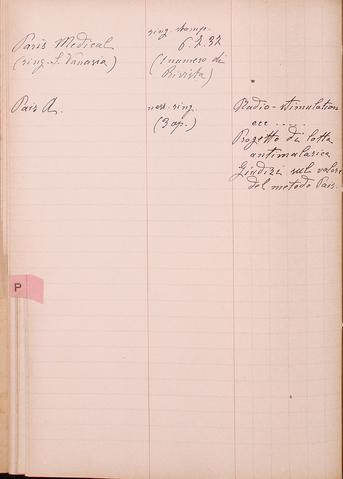 ring. stamp.
Paris Medical 6.2.32
(ring. S. Vanassa) (1 numero di
Rivista)
Pais A. ness. ring. Radio-stimulation
(3 op.) ecc .....
Progetto di lotta
antimalarica
Giudizi sul valore
del metodo Pais.
P